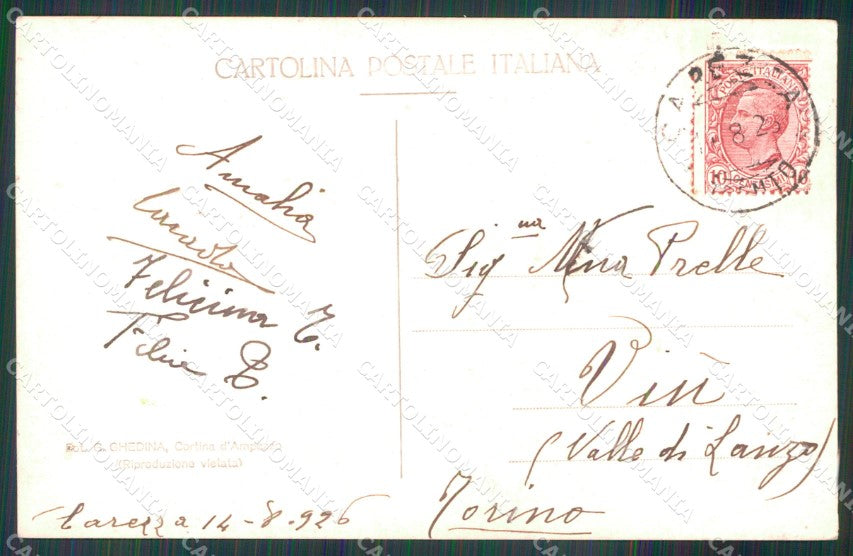 CARTOLINA POSTALE ITALIANA
POSTE ITALIANE
10 CENTESIMI 10
8.26
Amalia
Felicina T.
Felice B.
Sigᶰᵃ Nina Prelle
Viù
(Valle di Lanzo)
Torino
Fot. G. GHEDINA, Cortina d'Ampezzo
(Riproduzione vietata)
Carezza 14-8-926
CARTOLINOMANIA